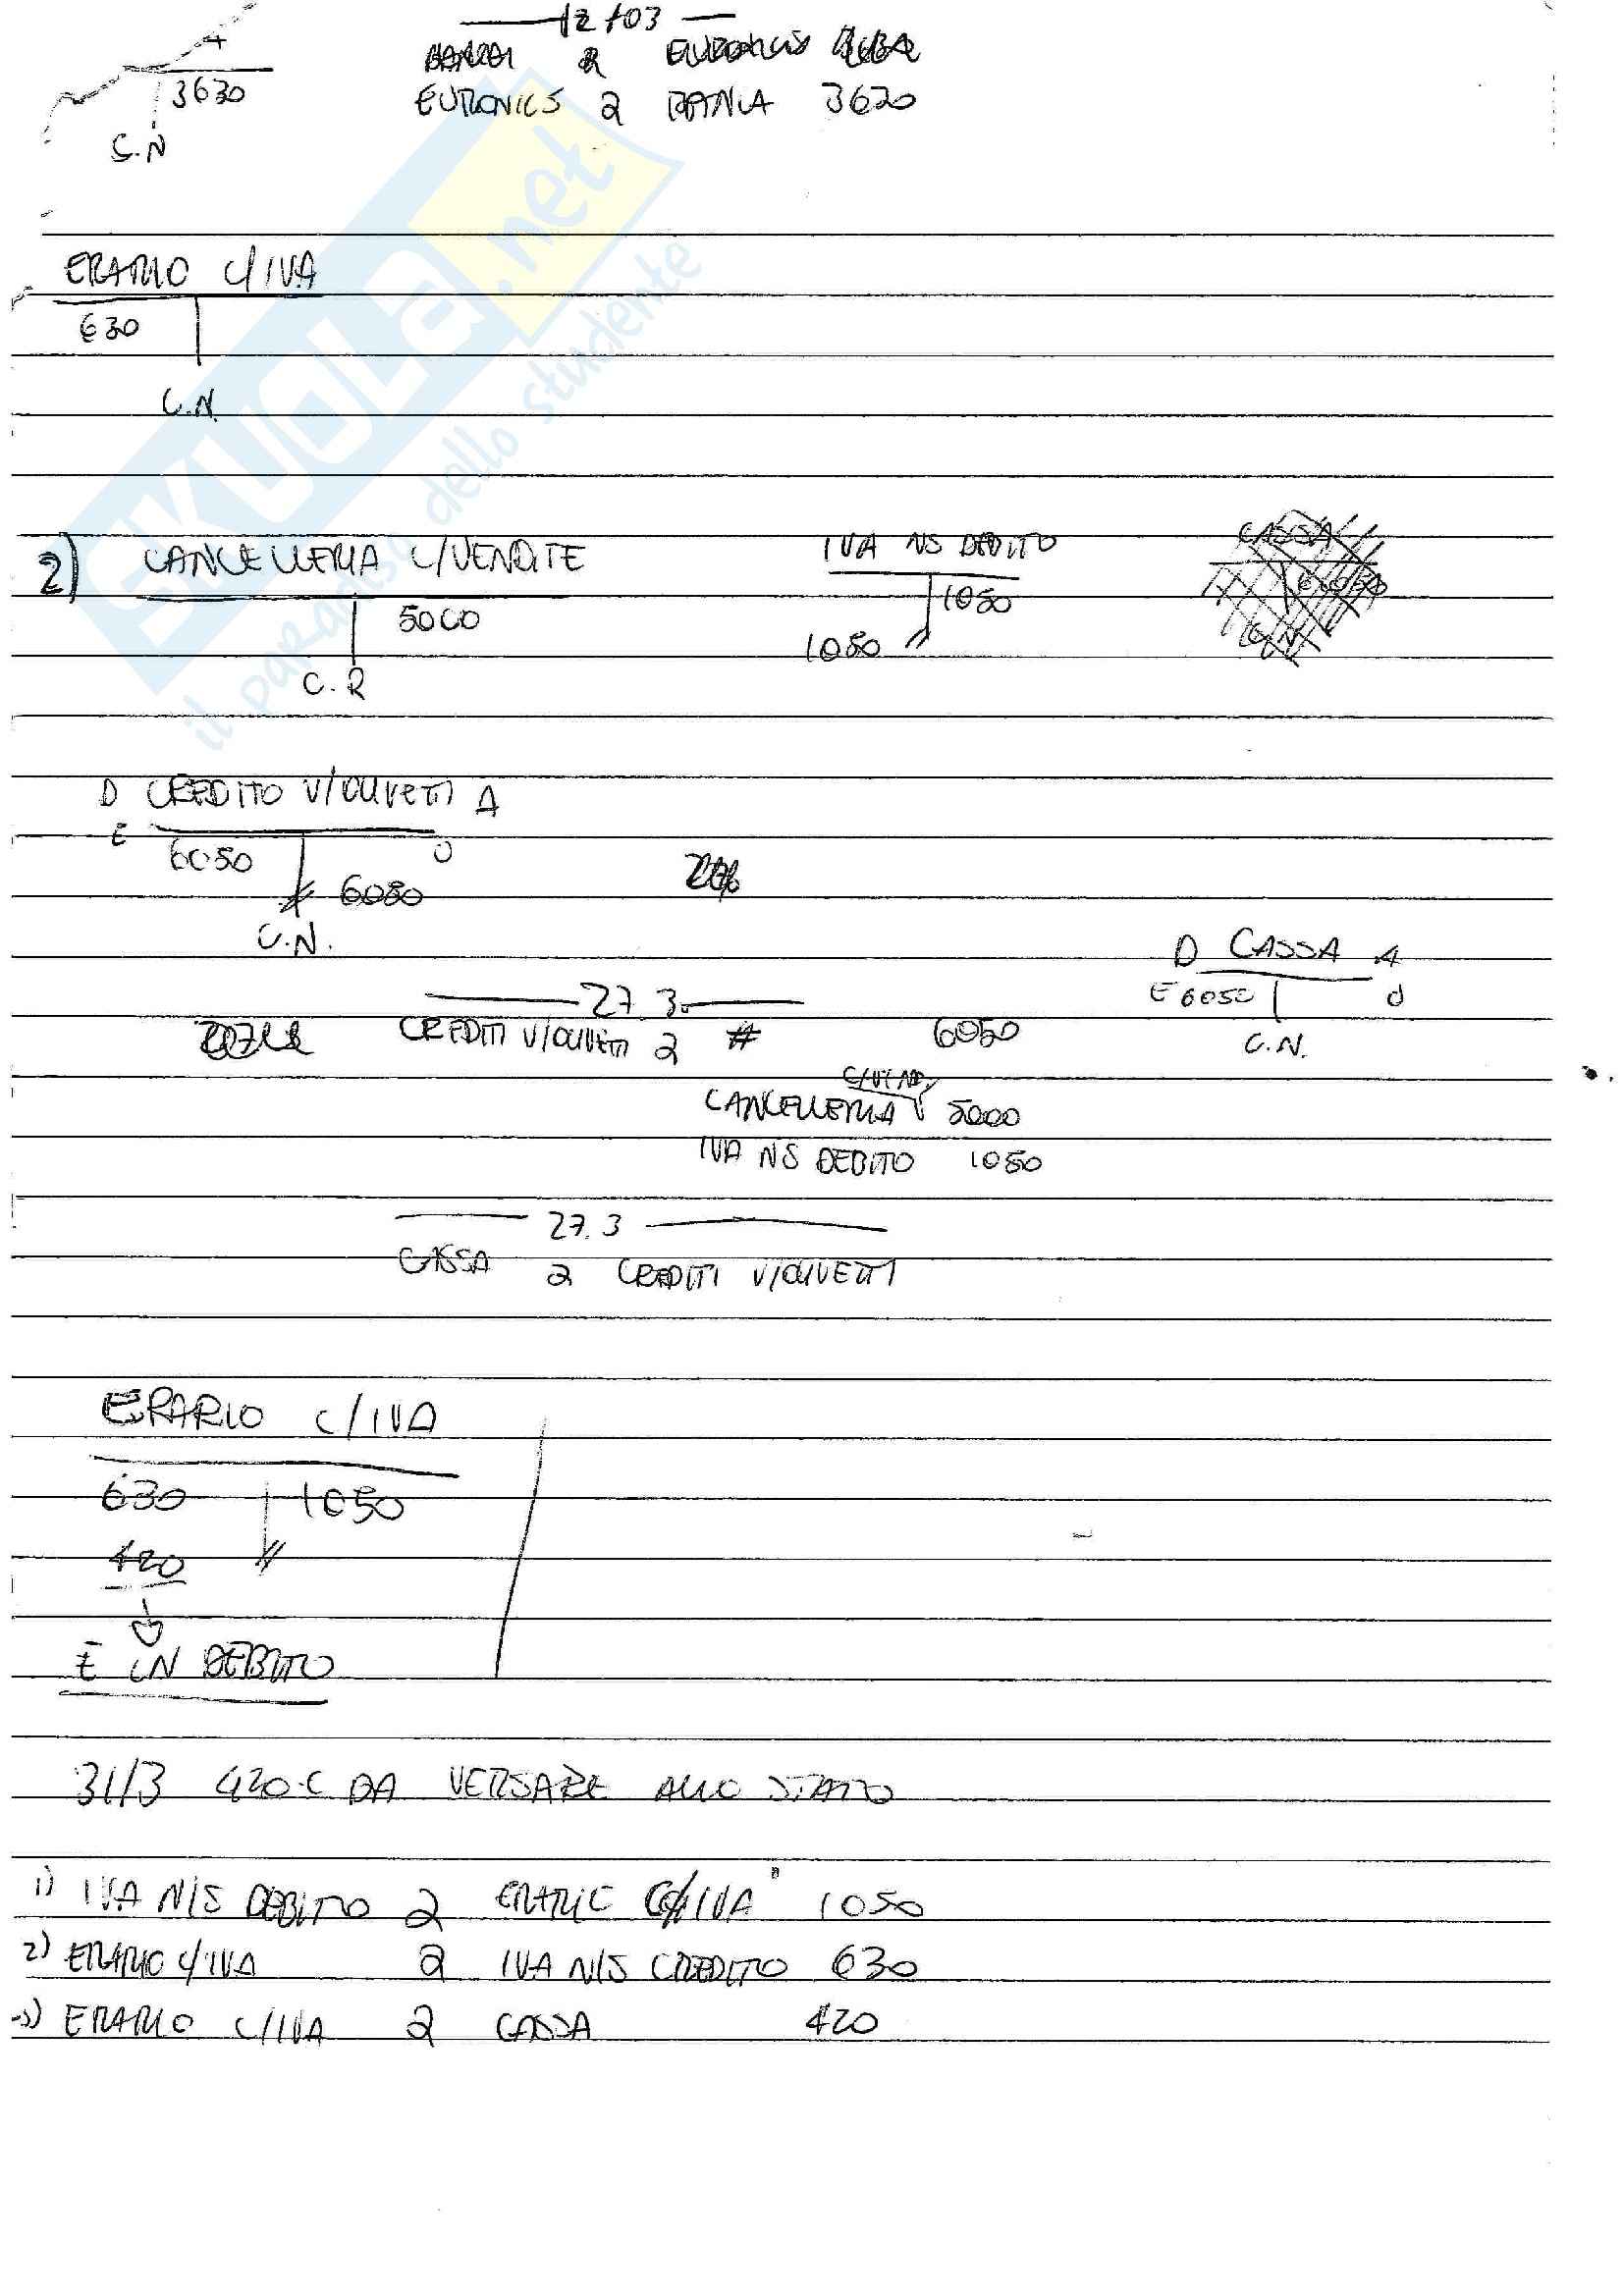 12/03
EURONICS a BANCA 3630
3630
C.N
ERARIO C/IVA
630
C.N.
2) CANCELLERIA C/VENDITE IVA NS DEBITO CASSA
5000 1050
1050
C.R
D CREDITO V/OLIVETTI A
E 6050 U
6050
C.N.
D CASSA A
E 6050 U
C.N.
27.3
CREDITI V/OLIVETTI a # 6050
C/VEND.
CANCELLERIA 5000
IVA NS DEBITO 1050
27.3
CASSA a CREDITI V/OLIVETTI
ERARIO C/IVA
630 1050
420
È IN DEBITO
31/3 420 € DA VERSARE ALLO STATO
1) IVA N/S DEBITO a ERARIO C/IVA 1050
2) ERARIO C/IVA a IVA N/S CREDITO 630
3) ERARIO C/IVA a CASSA 420
SKUOLA.net
il paradiso dello studente